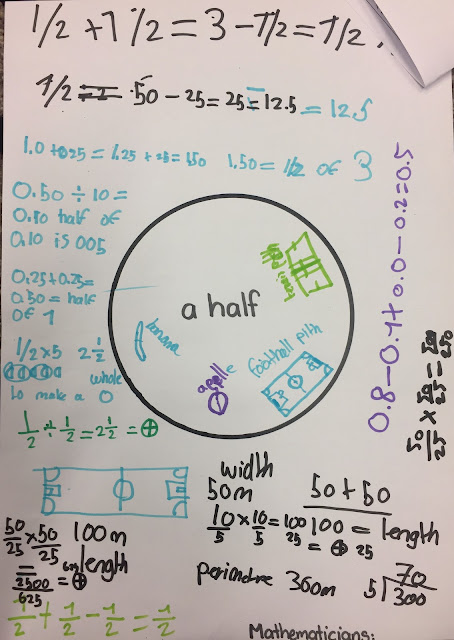 1/2 + 1 1/2 = 3 - 1/2 = 1/2.
1/2 = .50 - 25 = 25 = 12.5 = 12.5
1.0 + 0.25 = 1.25 + .25 = 1.50 1.50 = 1/2 of 3
0.50 ÷ 10 =
0.10 half of
0.10 is 005
0.25 + 0.25 =
0.50 = half
of 1
1/2 x 5 2 1/2
whole
to make a
1/2 ÷ 1/2 = 2 1/2 =
a half
banana
apple
football pith
0.8 - 0.4 + 0.0 - 0.2 = 0.5
width
50m
50 + 50
10/5 x 10/5 = 100/25 100 = length
= 25
50/25 x 50/25 100m
length
= 2500/625 =
perimetre 300m
70
5 300
1/2 + 1/2 - 1/2 = 1/2
Mathematicians: